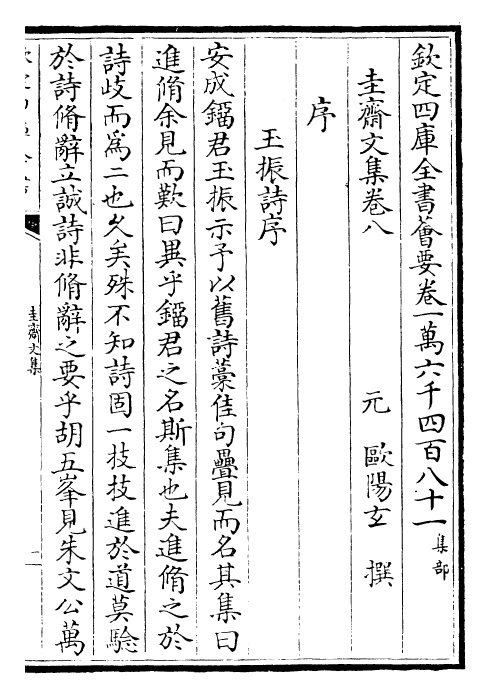 欽定四庫全書薈要卷一萬六千四百八十一集部
圭齋文集卷八
元 歐陽玄 撰
序
玉振詩序
安成鎦君玉振示予以舊詩藁佳句疊見而名其集曰
進脩余見而歎曰異乎鎦君之名斯集也夫進脩之於
詩歧而為二也久矣殊不知詩固一技技進於道莫騐
於詩脩辭立誠詩非脩辭之要乎胡五峯見朱文公萬
圭齋文集